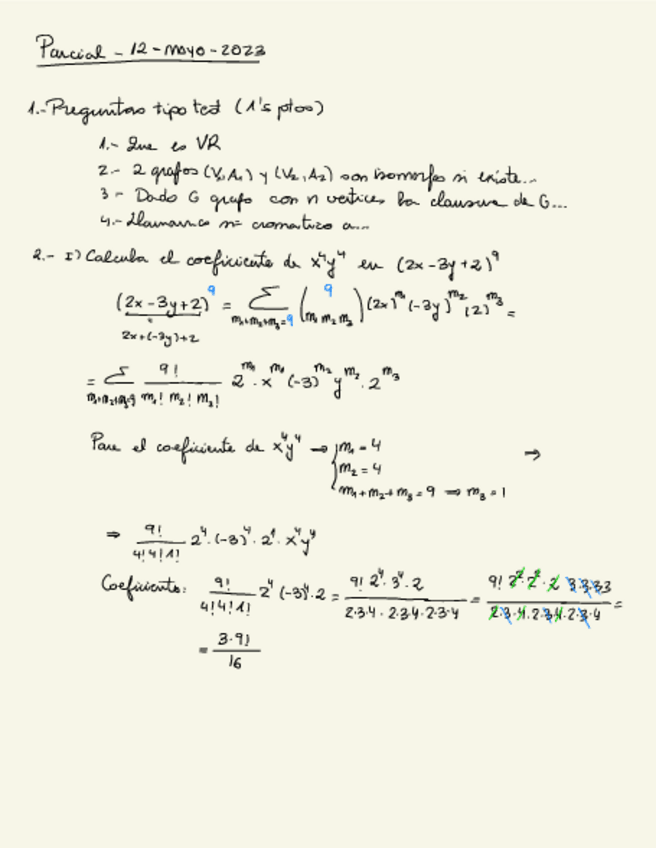 Parcial - 12 - mayo - 2023
1.- Preguntas tipo test (1's ptos)
1.- Que es VR
2.- 2 grafos (V₁,A₁) y (V₂,A₂) son isomorfos si existe...
3.- Dado G grafo con n vertices la clausura de G...
4.- Llamamos nº cromatico a...
2.- I) Calcula el coeficiente de x⁴y⁴ en (2x-3y+2)⁹
(2x-3y+2)⁹ = Σ m₁+m₂+m₃=9 (9 / m₁ m₂ m₃) (2x)^m₁ (-3y)^m₂ (2)^m₃ =
2x+(-3y)+2
= Σ m₁+m₂+m₃=9 9! / m₁! m₂! m₃! 2^m₁ · x^m₁ (-3)^m₂ y^m₂ · 2^m₃
Para el coeficiente de x⁴y⁴ → { m₁ = 4 ⇒
m₂ = 4
m₁+m₂+m₃ = 9 ⇒ m₃ = 1
⇒ 9! / 4! 4! 1! 2⁴ · (-3)⁴ · 2¹ · x⁴y⁴
Coeficiente: 9! / 4! 4! 1! 2⁴ (-3)⁴ · 2 = 9! 2⁴ · 3⁴ · 2 / 2·3·4 · 2·3·4 · 2·3·4 = 9! 2² · 2² · 2 3·3·3·3 / 2·3·4·2·3·4·2·3·4 =
= 3·9! / 16